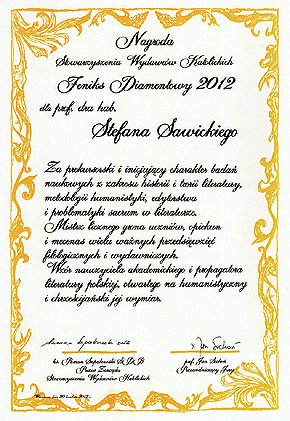 Nagroda
Stowarzyszenia Wydawców Katolickich
Feniks Diamentowy 2012
dla prof. dra hab.
Stefana Sawickiego
Za prekursorski i inicjujący charakter badań
naukowych z zakresu historii i teorii literatury,
metodologii humanistyki, edytorstwa
i problematyki sacrum w literaturze.
Mistrz licznego grona uczniów, opiekun
i mecenas wielu ważnych przedsięwzięć
filologicznych i wydawniczych.
Wzór nauczyciela akademickiego i propagatora
literatury polskiej, otwartego na humanistyczny
i chrześcijański jej wymiar.
ks. Roman Szpakowski SDB
Prezes Zarządu
Stowarzyszenia Wydawców Katolickich
prof. Jan Sochoń
Przewodniczący Jury